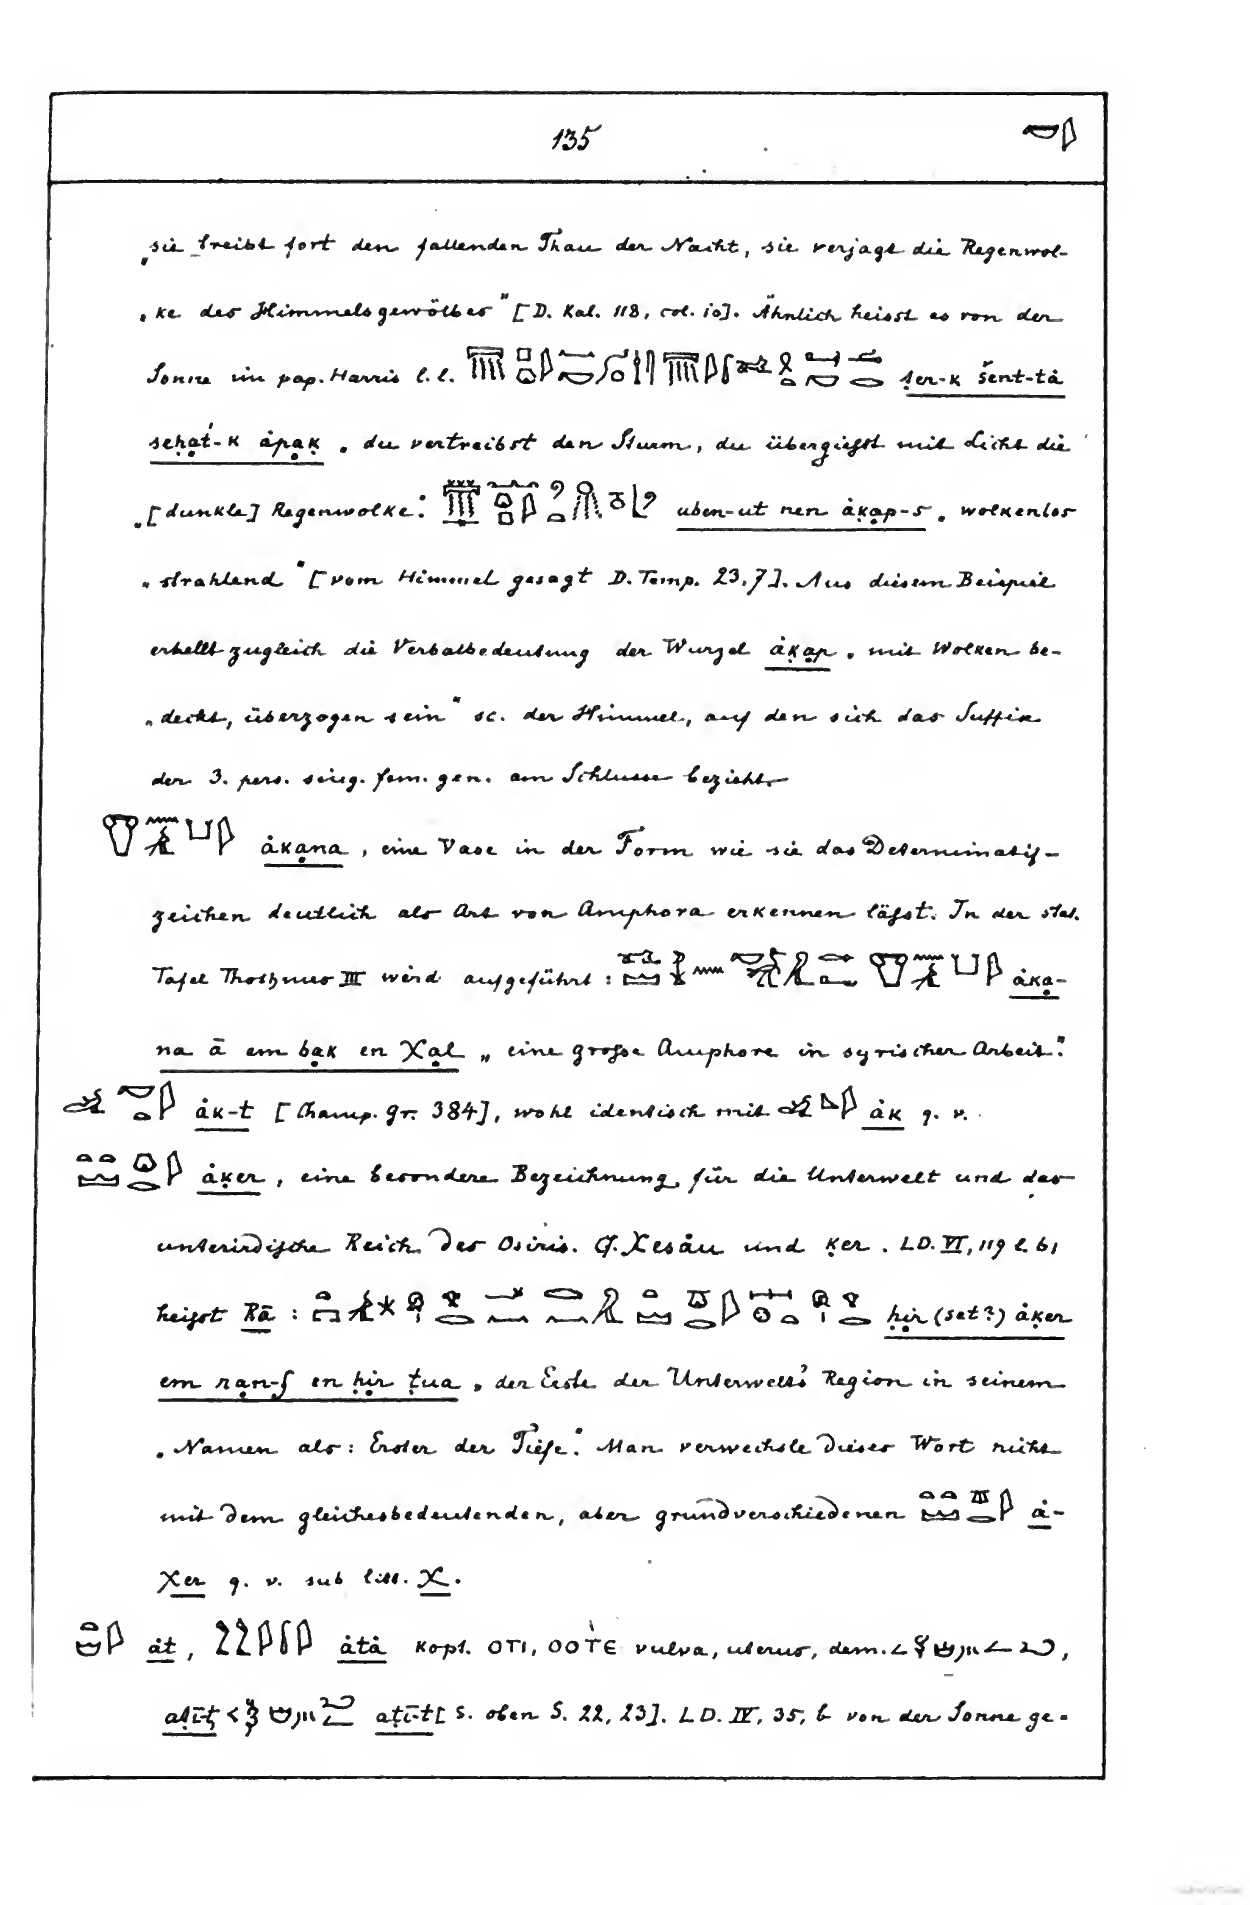 135
„sie treibt fort den fallenden Thau der Nacht, sie verjagt die Regenwol-
„ke des Himmelsgewölbes" [D. Kal. 118, col. 10]. Ähnlich heisst es von der
Sonne im pap. Harris l. l. ṭer-k šent-tȧ
seḥaṭ-k ȧpaḳ „du vertreibst den Sturm, du übergießt mit Licht die
„[dunkle] Regenwolke": uben-ut nen ȧḳap-s „wolkenlos
„strahlend" [vom Himmel gesagt D. Temp. 23,7]. Aus diesem Beispiel
erhellt zugleich die Verbalbedeutung der Wurzel ȧḳap „mit Wolken be-
„deckt, überzogen sein" sc. der Himmel, auf den sich das Suffix
der 3. pers. sing. fem. gen. am Schlusse bezieht.
ȧkana, eine Vase in der Form wie sie das Determinatif-
zeichen deutlich als Art von Amphora erkennen läßt. In der stat.
Tafel Thothmes III wird aufgeführt: ȧka-
na ā em bak en Xal „eine große Amphore in syrischer Arbeit".
ȧk-t [Champ. gr. 384], wohl identisch mit ȧk q. v.
ȧḳer, eine besondere Bezeichnung für die Unterwelt und das
unterirdische Reich des Osiris. Cf. Xesȧu und ḳer. LD. VI, 119 l. 61
heißt Rā: ḥir (set?) ȧḳer
em ran-f en ḥir ṭua „der Erste der Unterwelts Region in seinem
„Namen als: Erster der Tiefe". Man verwechsle dieses Wort nicht
mit dem gleichesbedeutenden, aber grundverschiedenen ȧ-
Xer q. v. sub litt. X.
ȧt, ȧtȧ kopt. ⲟϯ, ⲟⲟⲧⲉ vulva, uterus, dem.
aṭī-t [s. oben S. 22, 23]. LD. IV, 35, b von der Sonne ge-